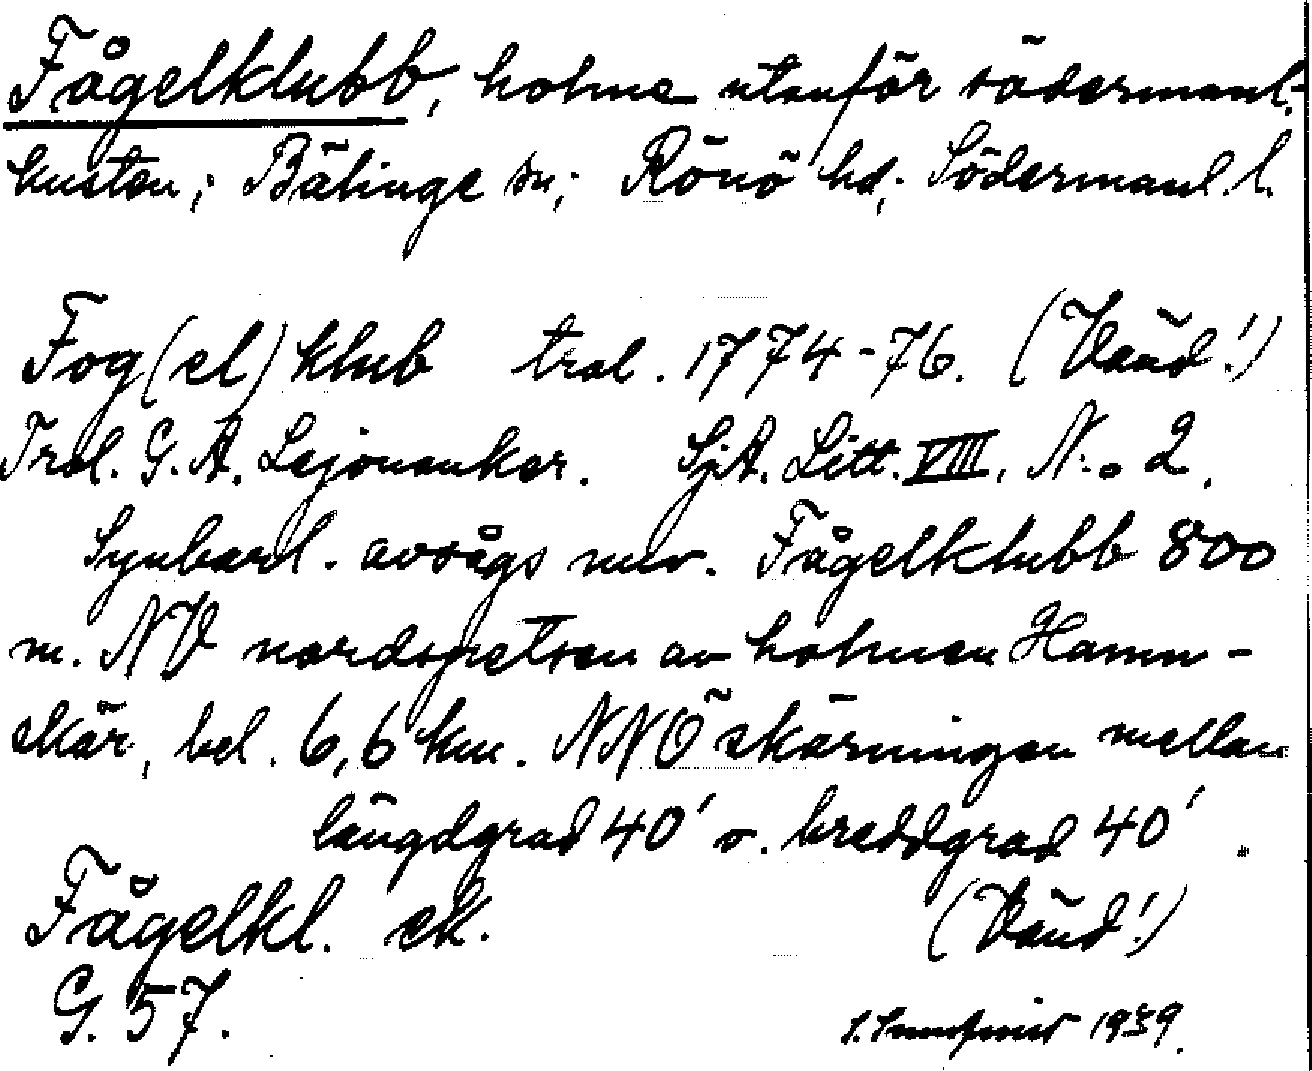 Fågelklubb, holme utanför södermanl.-
kusten; Bälinge sn; Rönö hd; Södermanl. l.
Fog(el)klub trol. 1774-76. (Vänd!)
Trol. G. A. Lejonanker. SjA. Litt. VIII. N:o 2.
Synbarl. avsågs nuv. Fågelklubb 800
m. NV nordspetsen av holmen Hamn-
skär, bel. 6,6 km. NNÖ skärningen mellan
längdgrad 40' o. breddgrad 40'.
Fågelkl. ek.
(Vänd!)
G. 57.
1939.